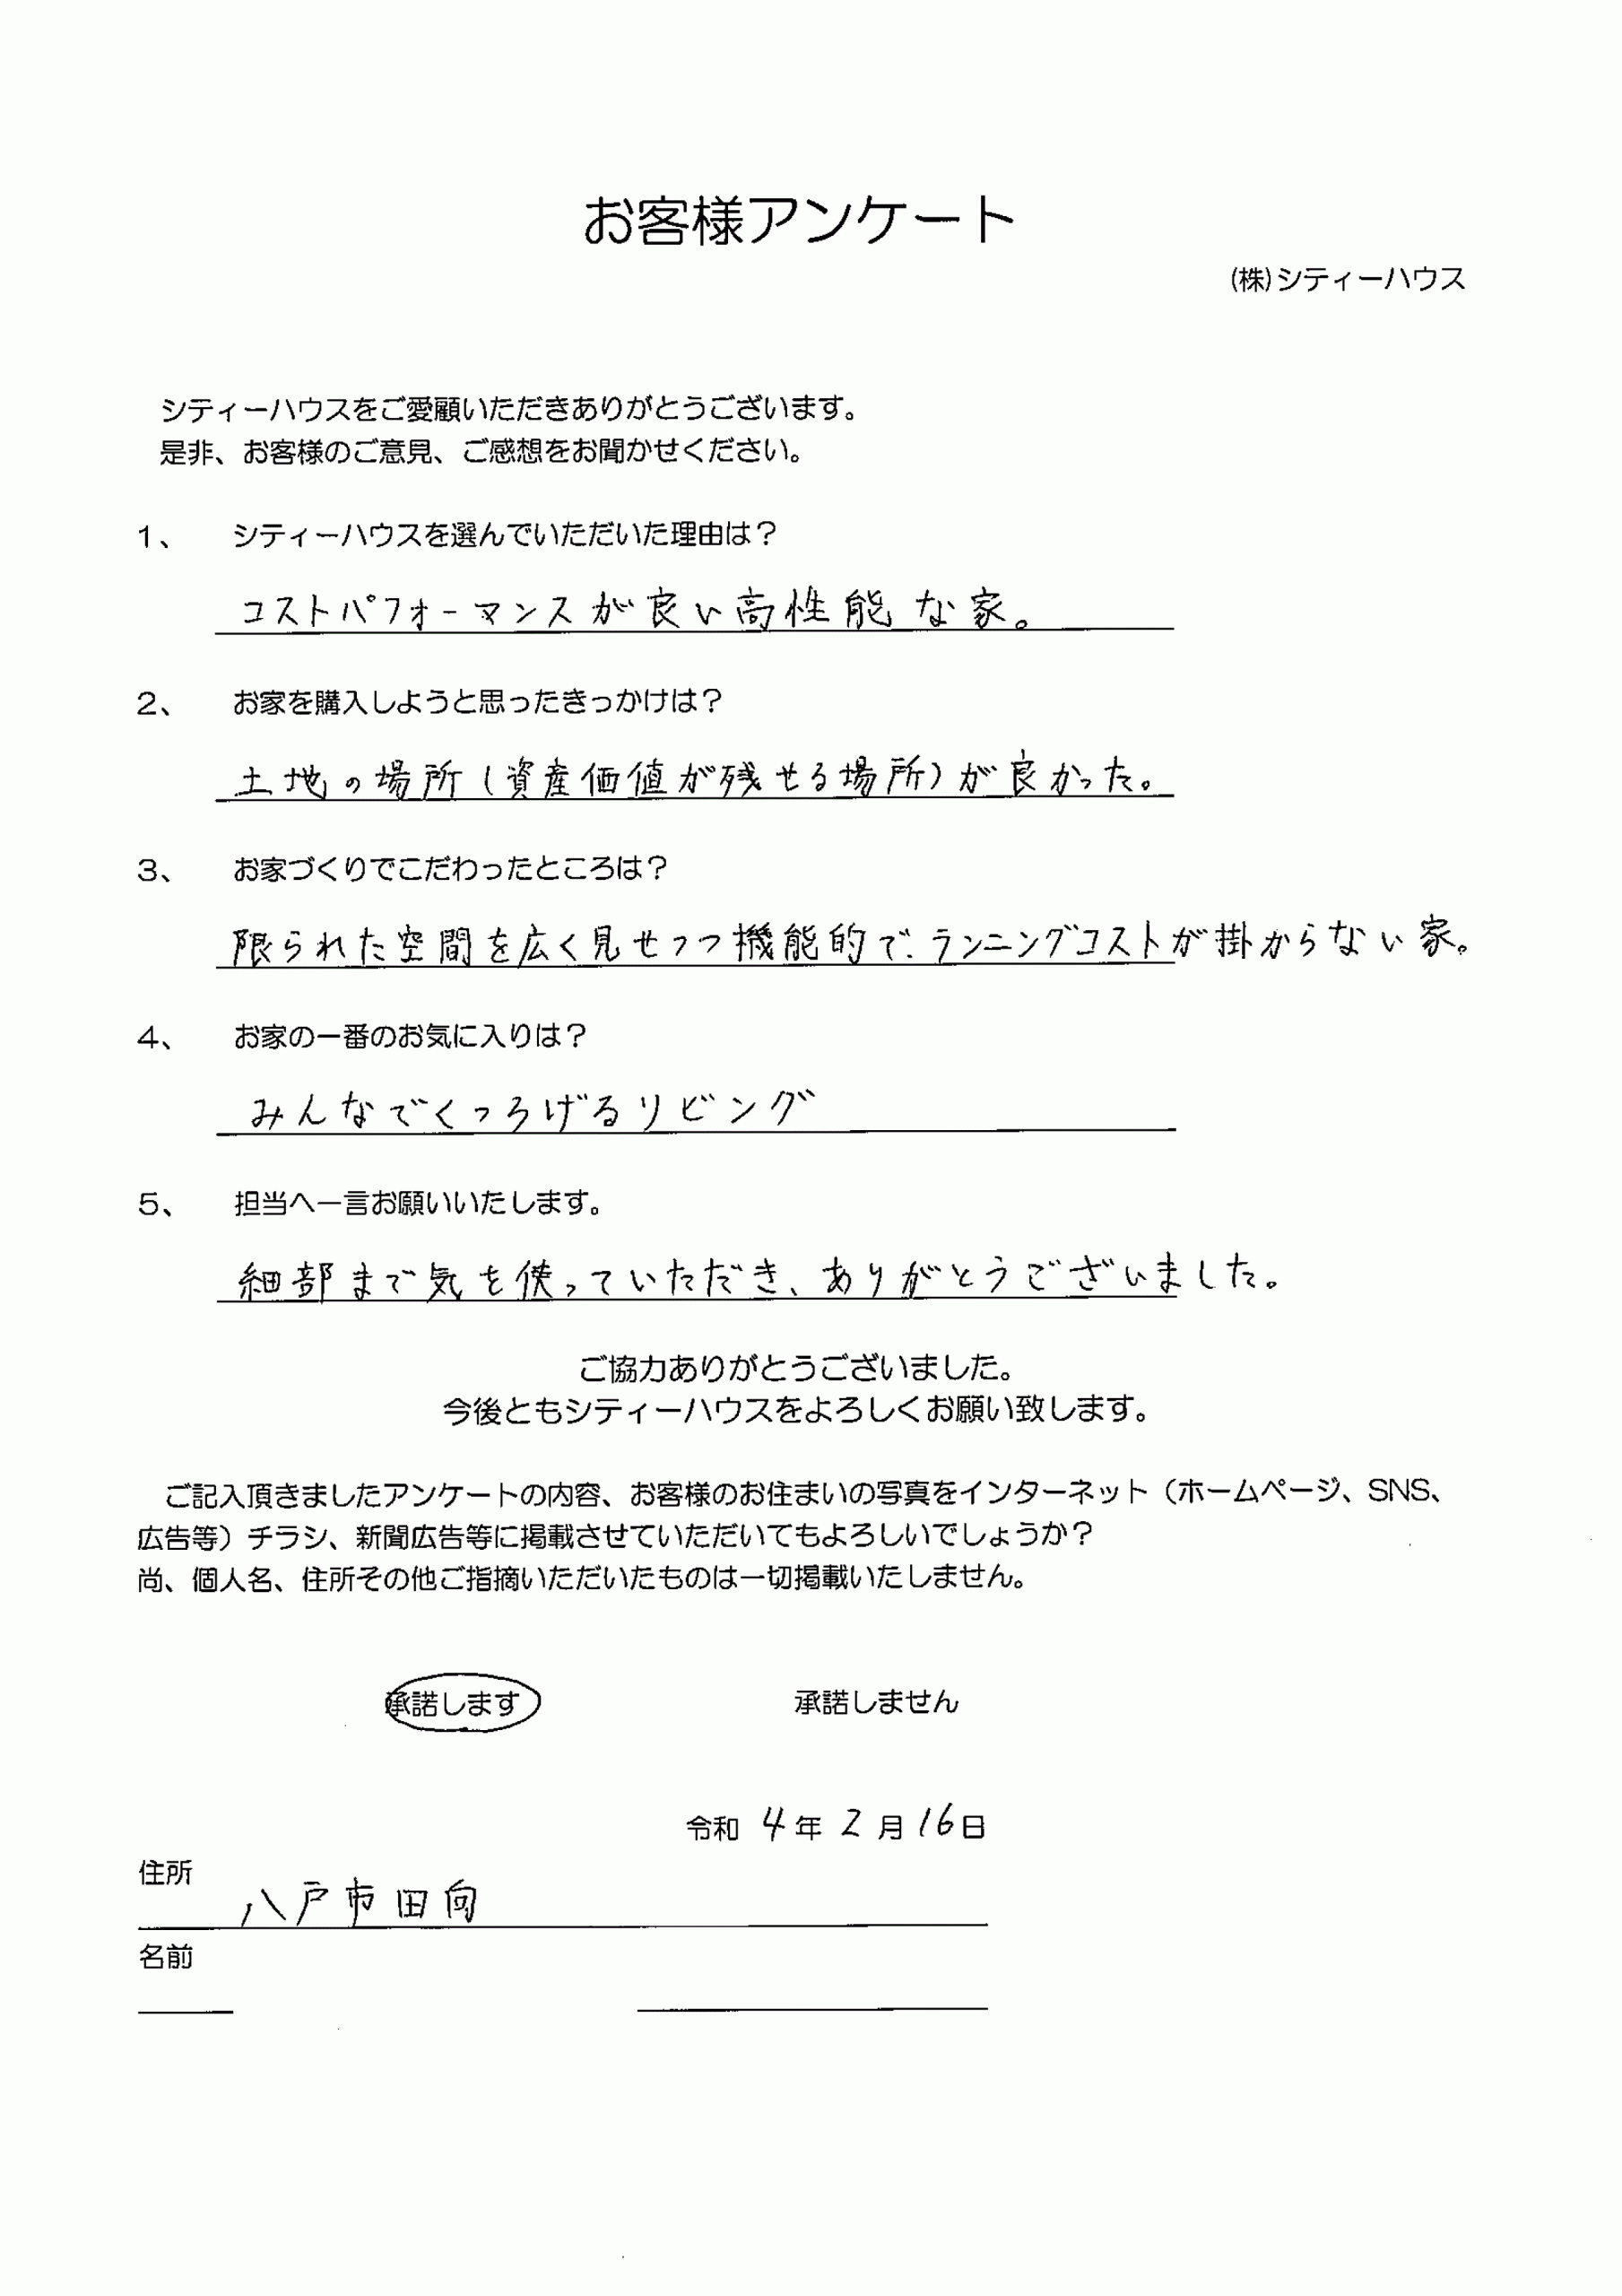 お客様アンケート
(株)シティーハウス
シティーハウスをご愛顧いただきありがとうございます。
是非、お客様のご意見、ご感想をお聞かせください。
1、 シティーハウスを選んでいただいた理由は？
コストパフォーマンスが良い高性能な家。
2、 お家を購入しようと思ったきっかけは？
土地の場所(資産価値が残せる場所)が良かった。
3、 お家づくりでこだわったところは？
限られた空間を広く見せつつ機能的で、ランニングコストが掛からない家。
4、 お家の一番のお気に入りは？
みんなでくつろげるリビング
5、 担当へ一言お願いいたします。
細部まで気を使っていただき、ありがとうございました。
ご協力ありがとうございました。
今後ともシティーハウスをよろしくお願い致します。
ご記入頂きましたアンケートの内容、お客様のお住まいの写真をインターネット（ホームページ、SNS、
広告等）チラシ、新聞広告等に掲載させていただいてもよろしいでしょうか？
尚、個人名、住所その他ご指摘いただいたものは一切掲載いたしません。
承諾します 承諾しません
令和 4年 2月16日
住所
八戸市田向
名前